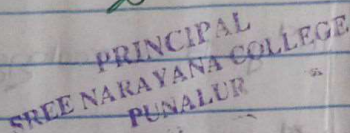 PRINCIPAL
SREE NARAYANA COLLEGE
PUNALUR